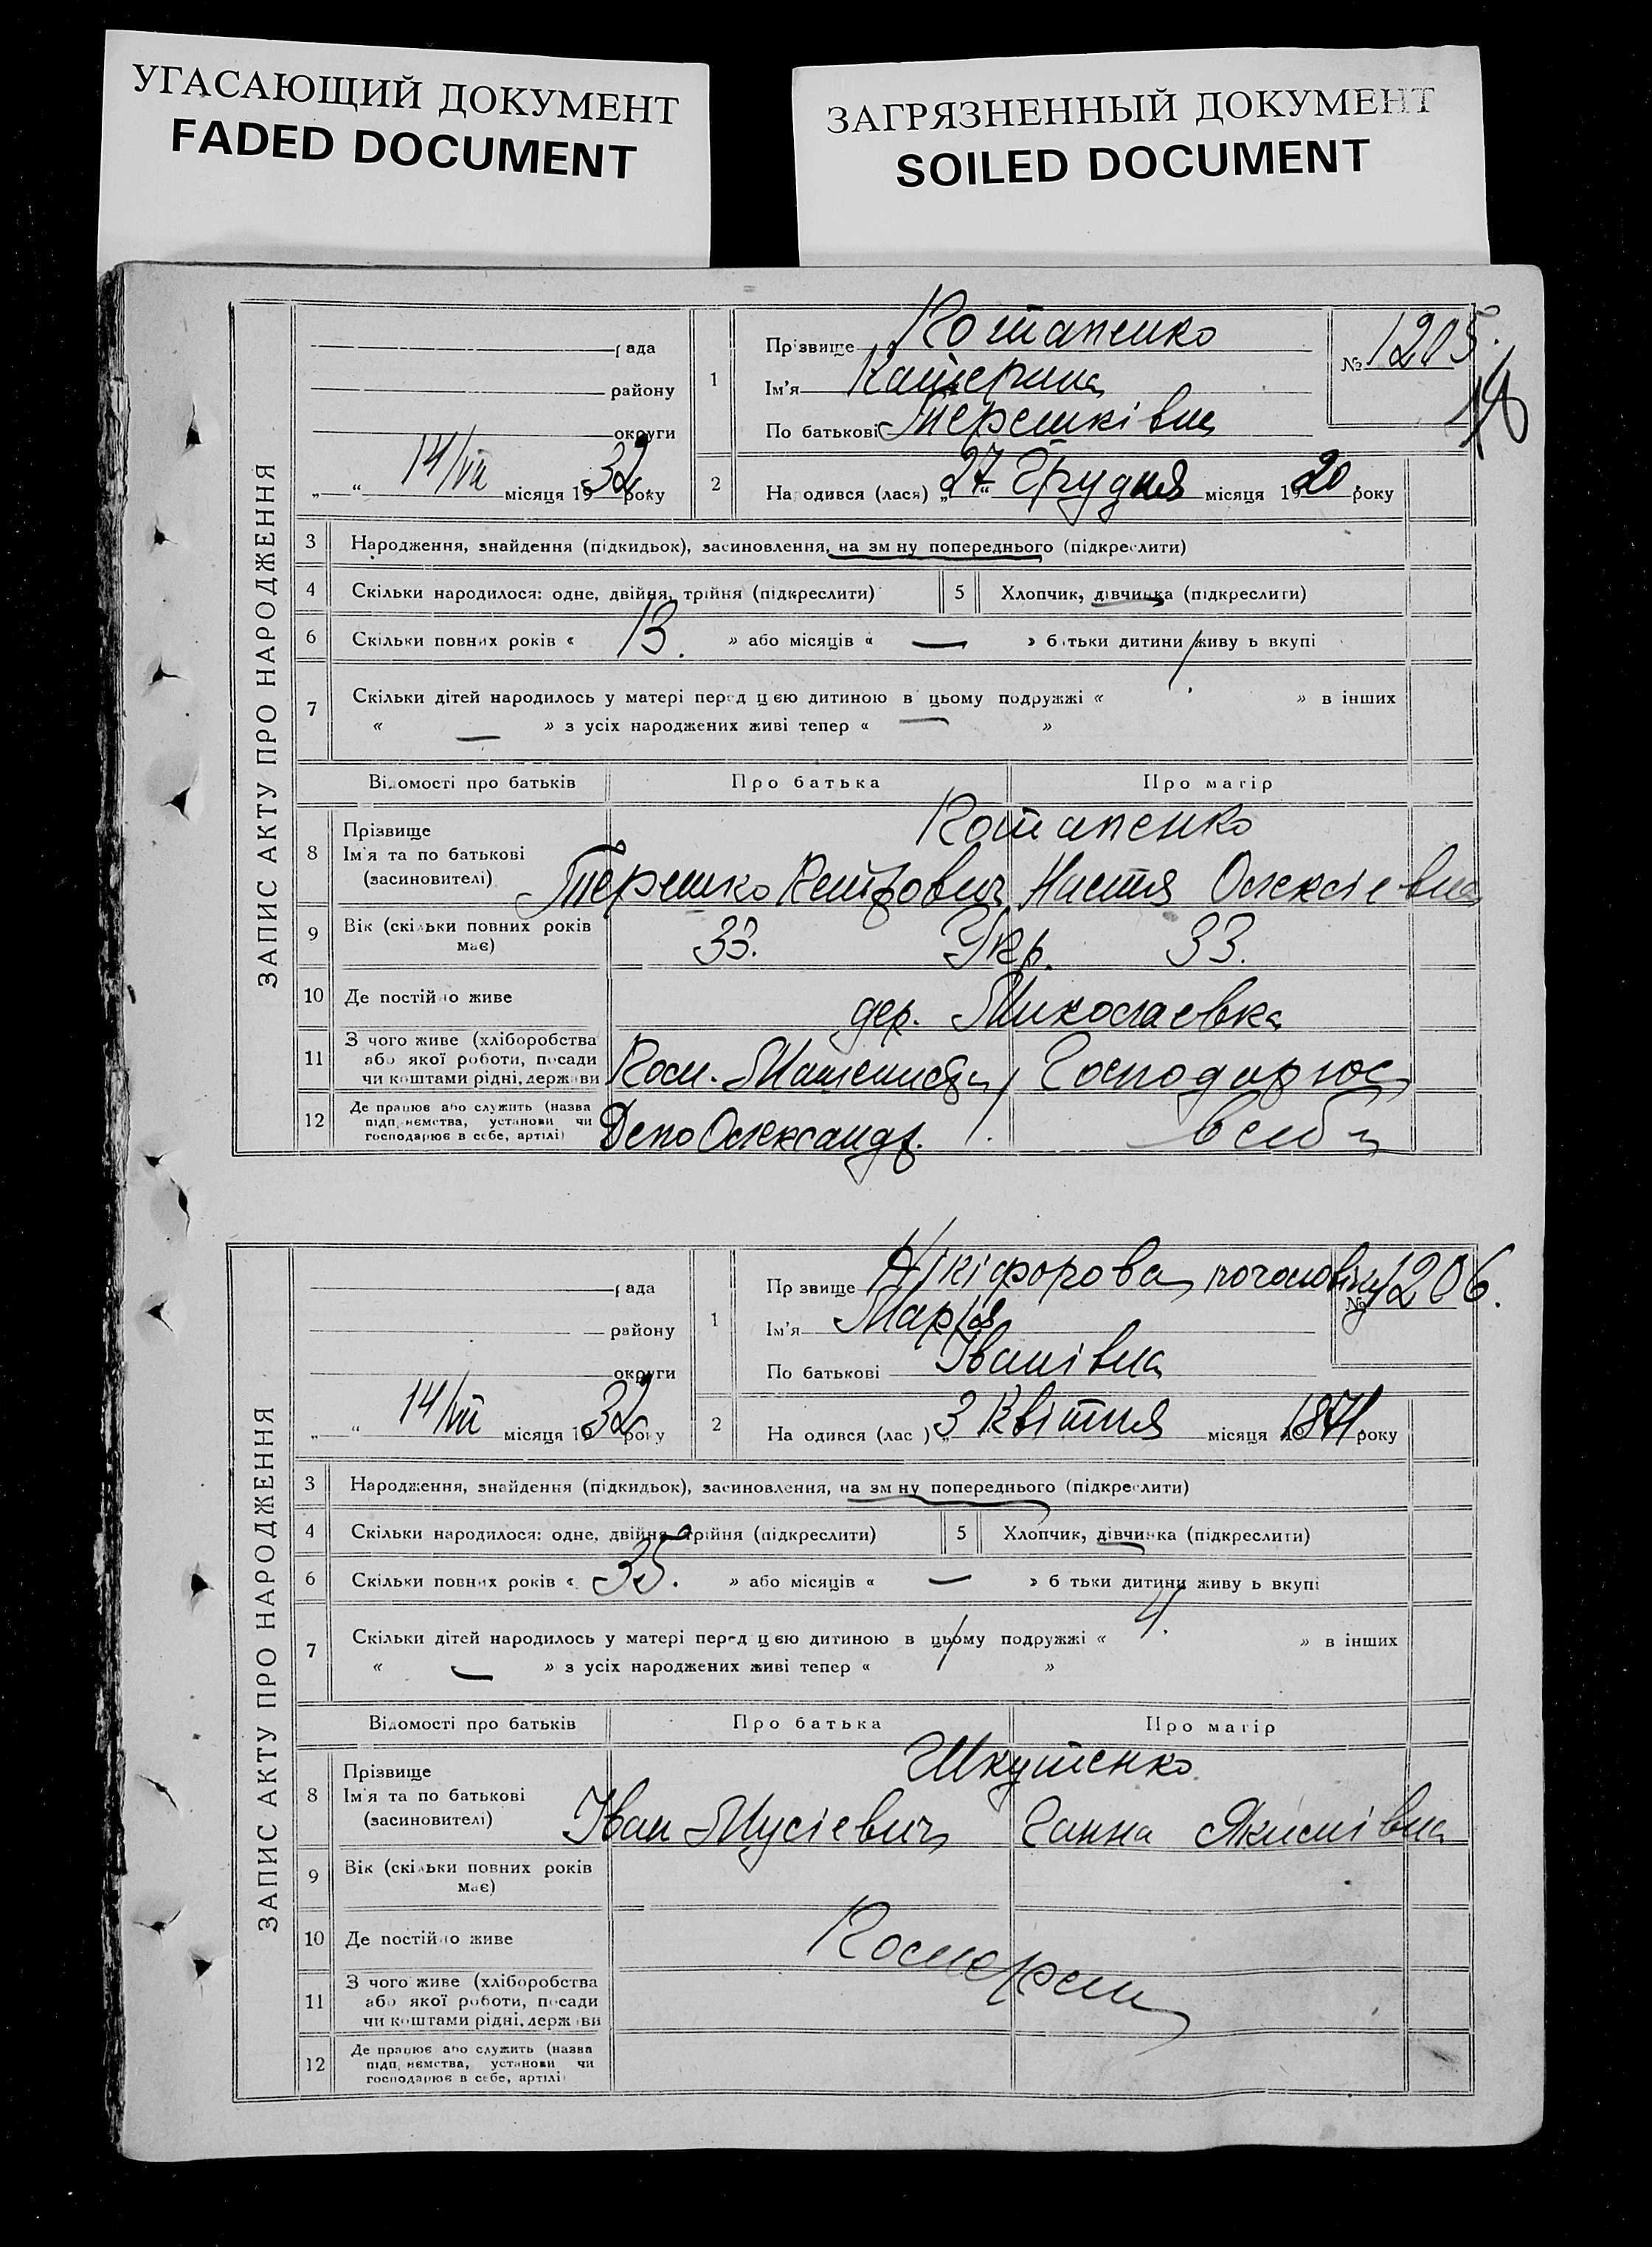 УГАСАЮЩИЙ ДОКУМЕНТ
FADED DOCUMENT
ЗАГРЯЗНЕННЫЙ ДОКУМЕНТ
SOILED DOCUMENT
ЗАПИС АКТУ ПРО НАРОДЖЕННЯ
рада
району
округи
„ “ 14/VII місяця 1932 року
1
Прізвище Котапенко
Ім'я Катерина
По батькові Терешківна
№ 1205.
2 Народився (лася) „27“ Грудня місяця 1920 року
3 Народження, знайдення (підкидьок), засиновлення, на зміну попереднього (підкреслити)
4 Скільки народилося: одне, двійня, трійня (підкреслити)
5 Хлопчик, дівчинка (підкреслити)
6 Скільки повних років « 13. » або місяців « — » батьки дитини живуть вкупі
7 Скільки дітей народилось у матері перед цією дитиною в цьому подружжі « » в інших
« — » з усіх народжених живі тепер « — »
Відомості про батьків Про батька Про матір
8 Прізвище
Ім'я та по батькові
(засиновителі)
Котапенко
Терешко Петрович Настя Олексіевна
9 Вік (скільки повних років має)
33. Укр. 33.
10 Де постійно живе
дер. Миколаевка
11 З чого живе (хліборобства
або якої роботи, посади
чи коштами рідні, держави
Пом. Машеніста Господарює
12 Де працює або служить (назва
підприємства, установи чи
господарює в себе, артілі)
Депо Олександр. в себе
ЗАПИС АКТУ ПРО НАРОДЖЕННЯ
рада
району
округи
„ “ 14/VII місяця 1932 року
1
Прізвище Нікіфорова, почоловіку
Ім'я Марія
По батькові Іванівна
№ 1206.
2 Народився (лася) „3 Квітня місяця 1871 року
3 Народження, знайдення (підкидьок), засиновлення, на зміну попереднього (підкреслити)
4 Скільки народилося: одне, двійня, трійня (підкреслити)
5 Хлопчик, дівчинка (підкреслити)
6 Скільки повних років « 35. » або місяців « — » батьки дитини живуть вкупі
7 Скільки дітей народилось у матері перед цією дитиною в цьому подружжі « 4. » в інших
« — » з усіх народжених живі тепер « / »
Відомості про батьків Про батька Про матір
8 Прізвище
Ім'я та по батькові
(засиновителі)
Шкутенко
Іван Мусієвич Ганна Якимівна
9 Вік (скільки повних років має)
10 Де постійно живе
Померли
11 З чого живе (хліборобства
або якої роботи, посади
чи коштами рідні, держави
12 Де працює або служить (назва
підприємства, установи чи
господарює в себе, артілі)